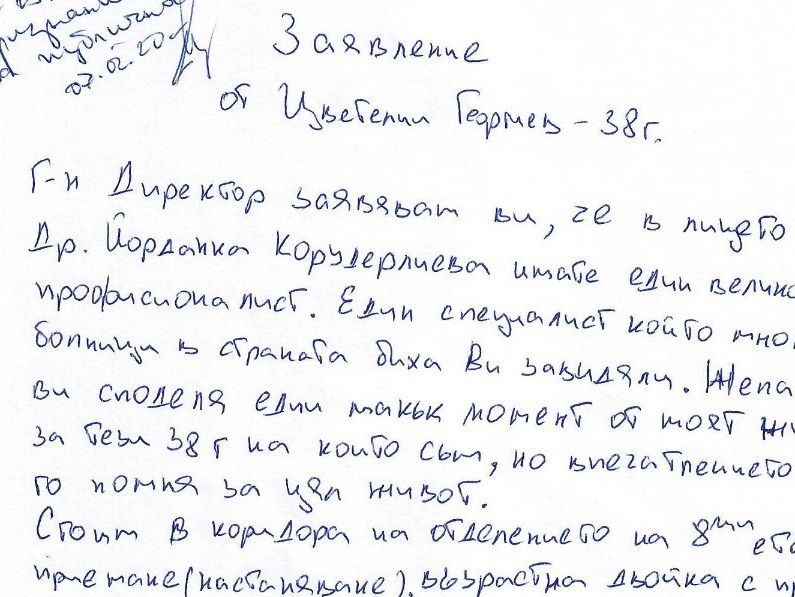 признан
публична
07.02.20
Заявление
от Цветелин Георгиев - 38 г.
Г-н Директор заявявам ви, че в лицето
Др. Йорданка Корудерлиева имате един велик
професионалист. Един специалист който мно
болници в страната биха Ви завидяли. Жела
ви споделя един макък момент от моят жи
за тези 38 г на които съм, но впечатлението
го помня за цял живот.
Стоим в коридора на отделението на 8ми ета
приемане (настаняване). възрастна двойка с